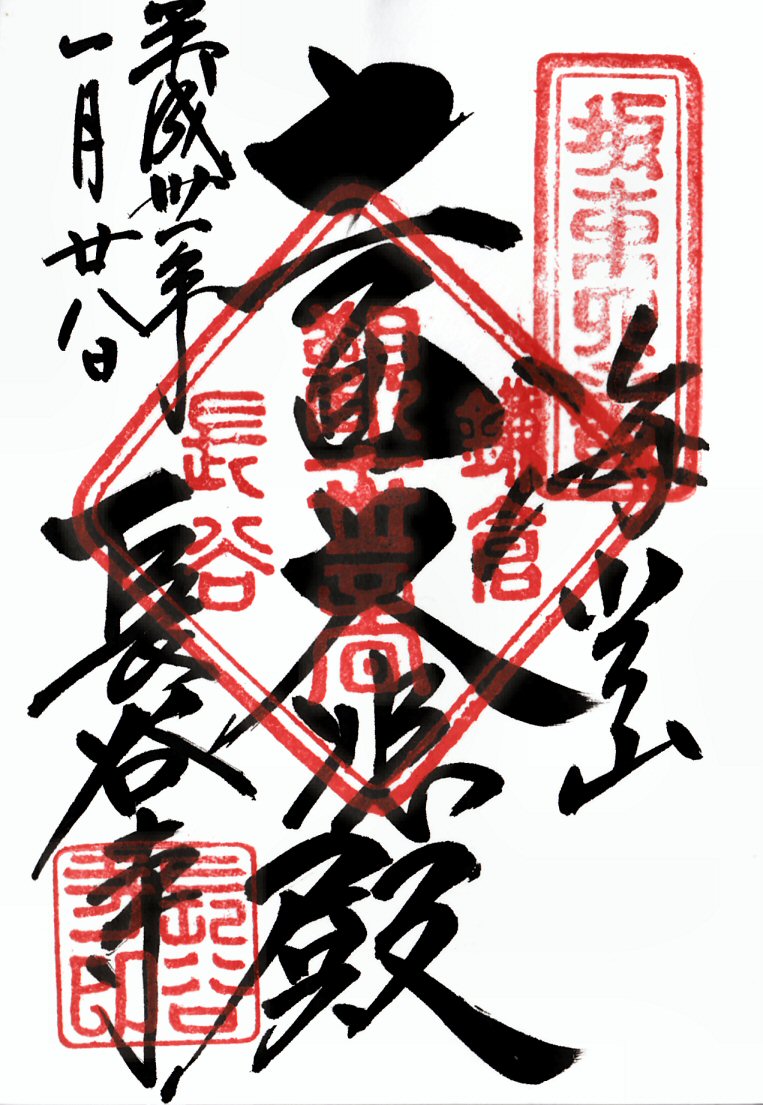 坂東四番
海光山
鎌倉
十一面大悲殿
長谷
平成卅一年
一月廿八日
長谷寺
長谷
寺印